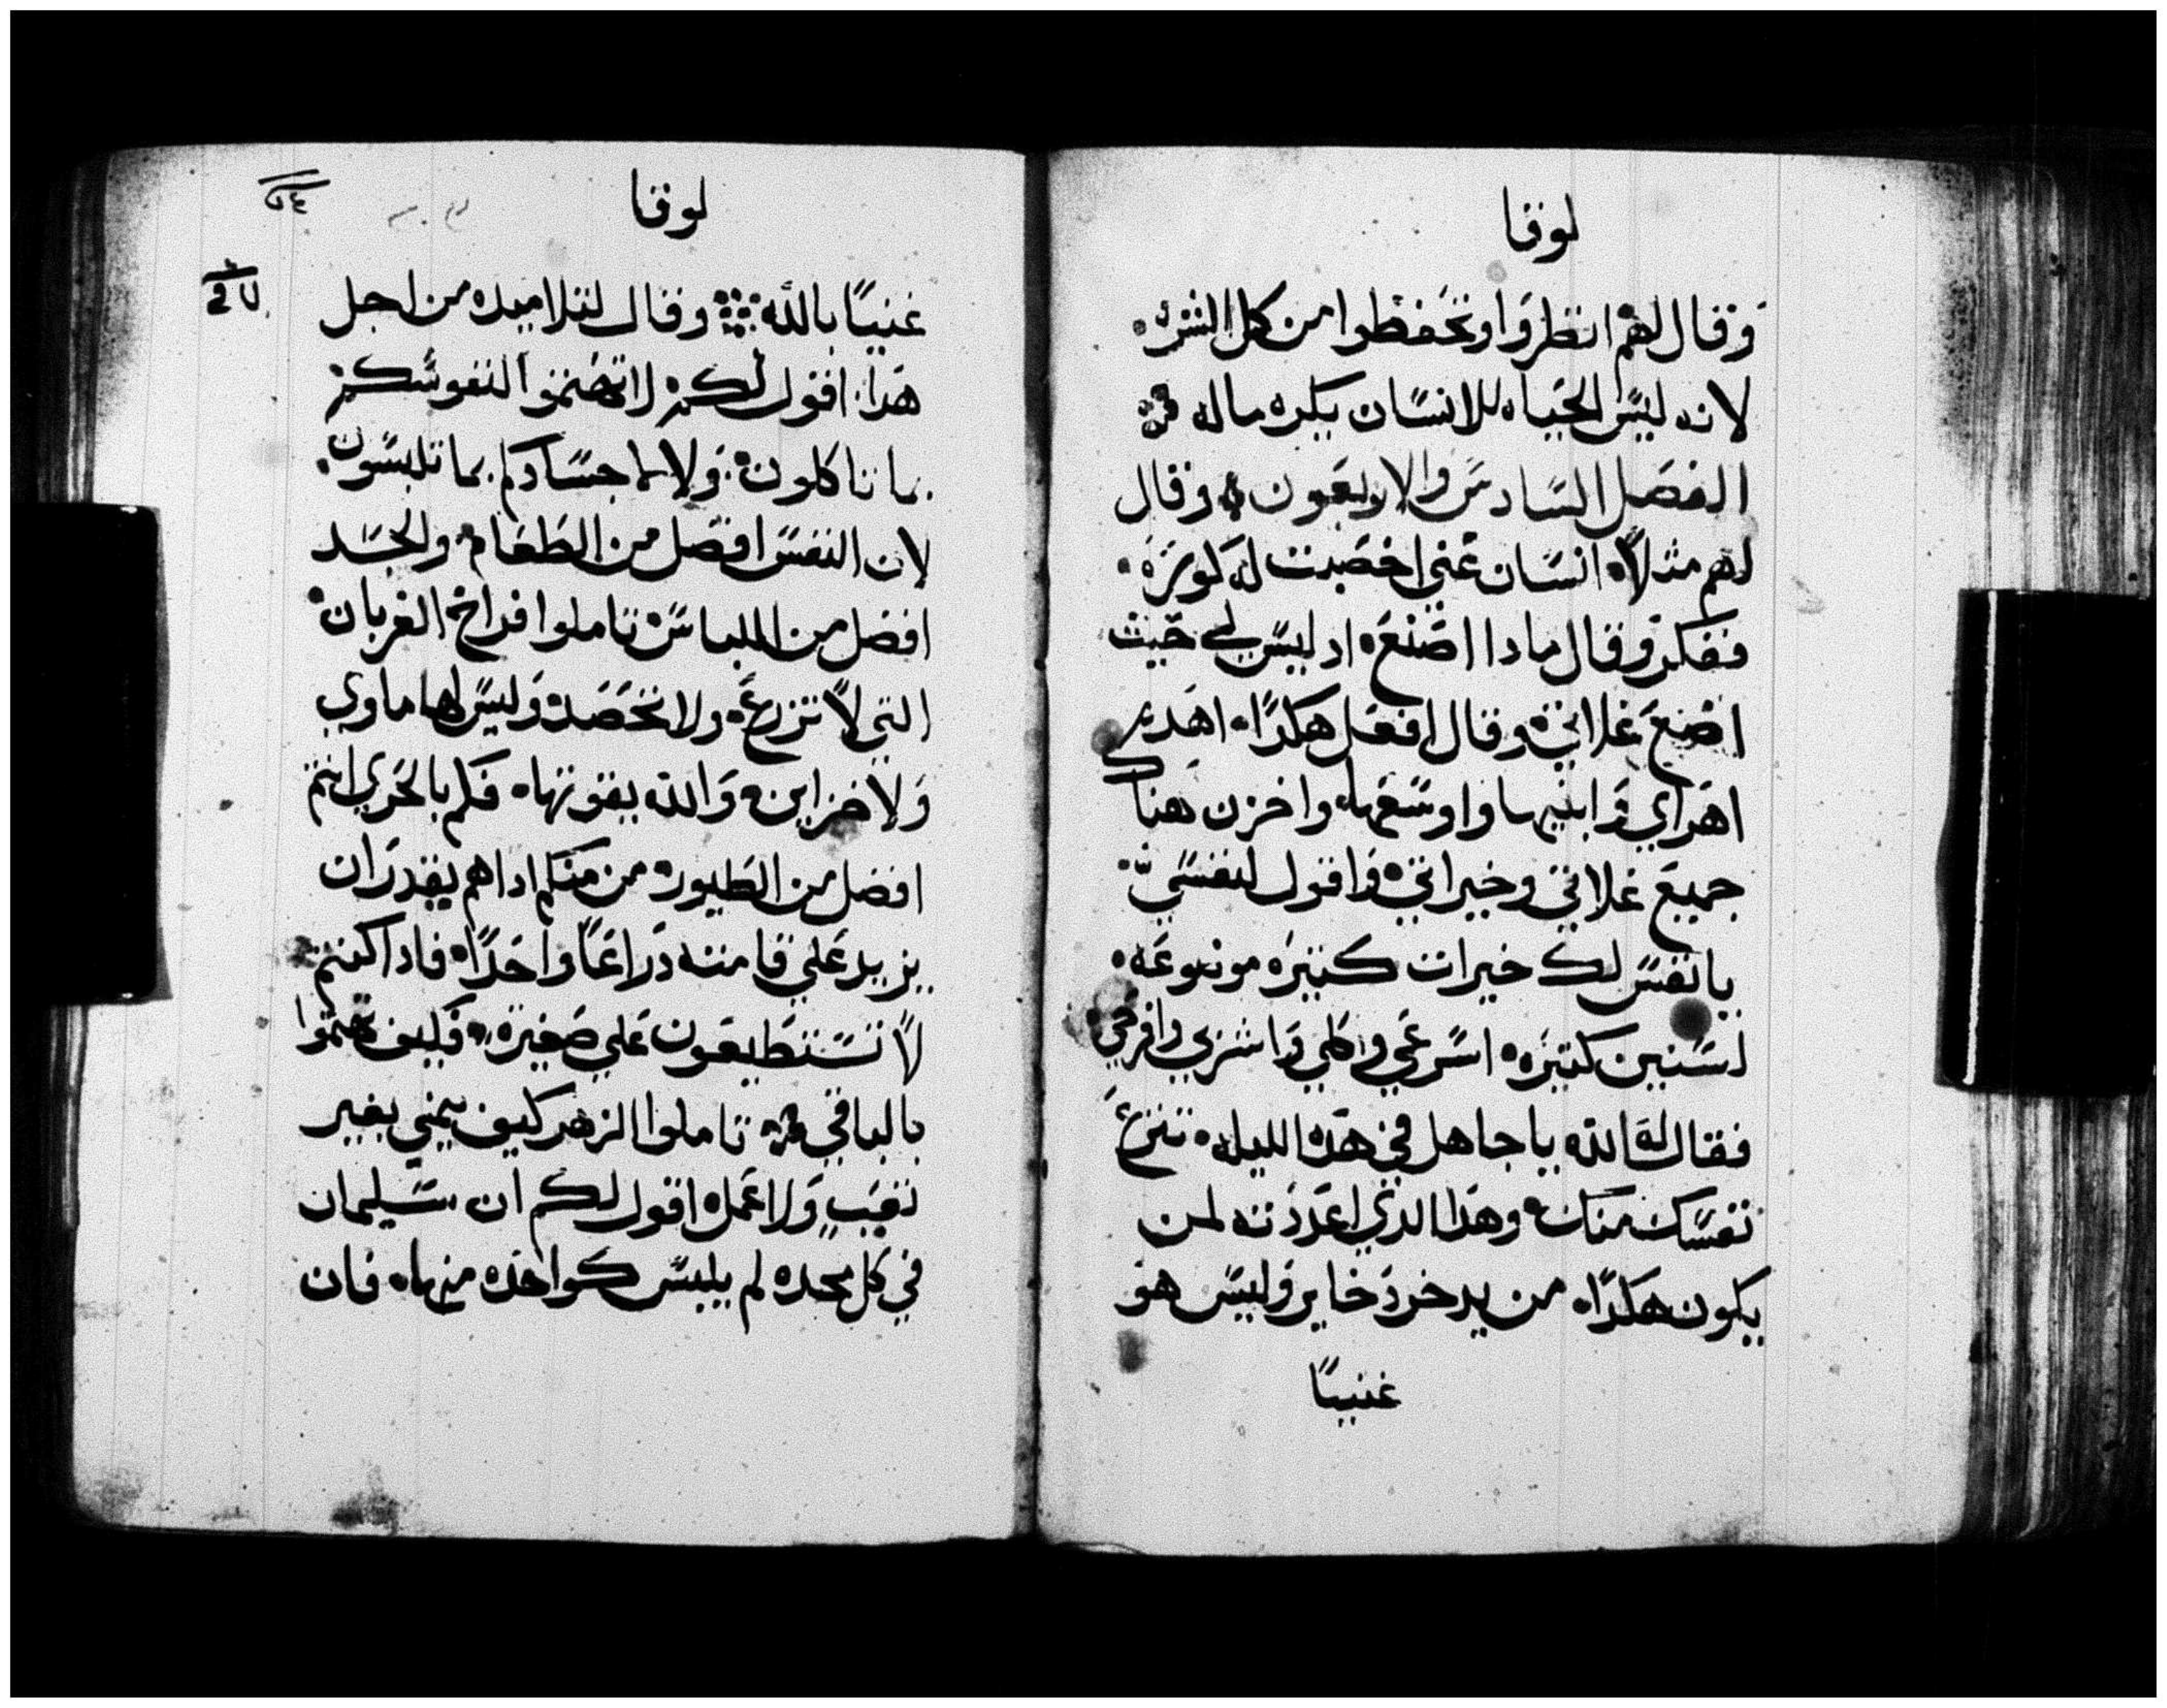 لوقا
وقال لهم انظروا وتحفظوا من كل الشره
لانه ليس الحياه للانسان بكتره ماله
الفصل السادس والاربعون وقال
لهم مثلاً انسان غني اخصبت له كورة
ففكر وقال مادا اصنع اد ليس لي حيث
اضع غلاتي وقال افعل هكداً اهدم
اهراي وابنيها واوسعها واخزن هناك
جميع غلاتي وخيراتي واقول لنفسي
يا نفس لك خيرات كتيره موضوعه
لسنين كتيره استريحي وكلي واشربي وافرحي
فقال له الله يا جاهل في هده الليله تنزع
نفسك منك وهدا الدي اعددته لمن
يكون هكداً من يدخر دخاير وليس هو
غنيباً
لوقا
غنيباً بالله وقال لتلاميده من اجل
هدا اقول لكم لا تهتموا لنفوسكم
بما تاكلون ولا لاجسادكم بما تلبسون
لان النفس افضل من الطعام والجسد
افضل من اللباس تاملوا فراخ الغربان
التي لا تزرع ولا تحصد وليس لها ماوي
ولا خزاين والله يقوتها فكم بالحري انتم
افضل من الطيور من منكم ادا هم يقدر ان
يزيد علي قامته دراعاً واحداً فادا كنتم
لا تستطيعون علي صغيرة فكيف تهتموا
بالباقي تاملوا الزهر كيف ينمي بغير
تعب ولا عمل اقول لكم ان سليمان
في كل مجده لم يلبس كواحده منها فان